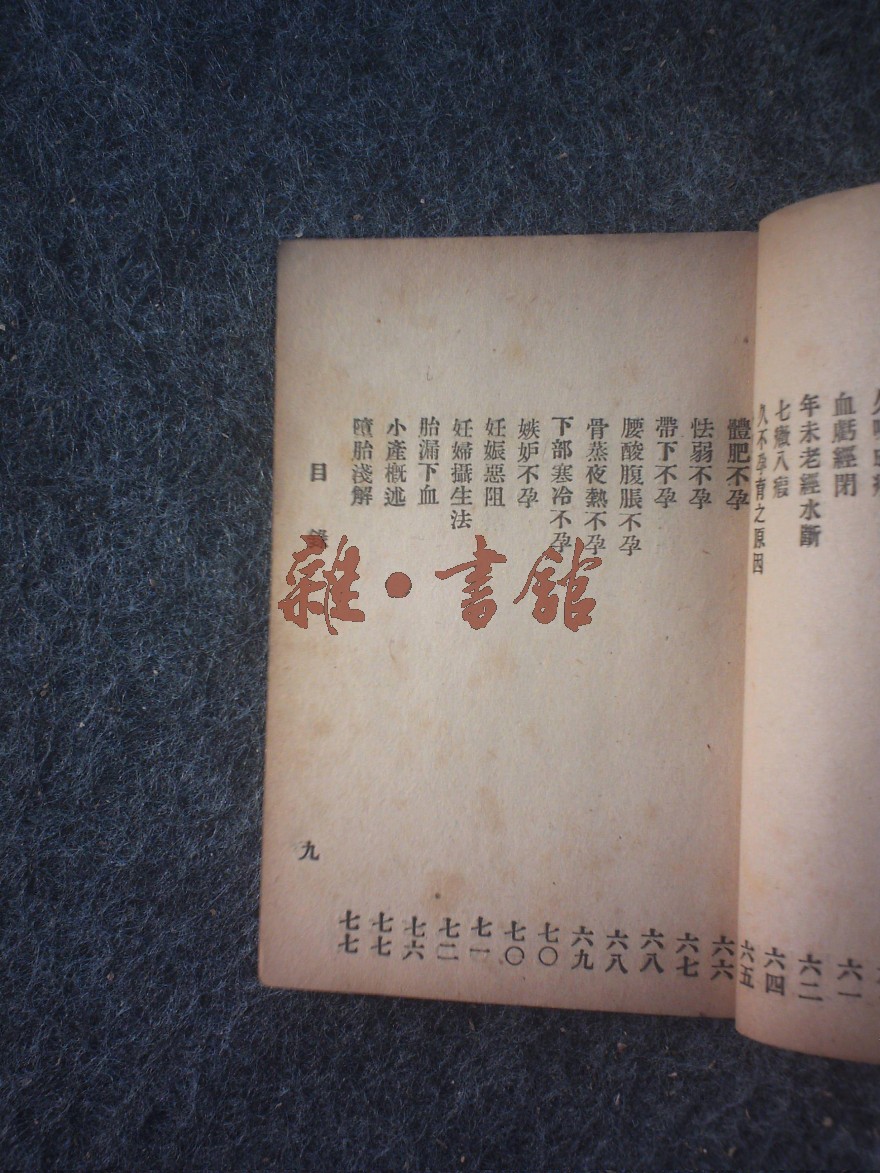 血虧經閉 六一
年未老經水斷 六二
七癥八瘕 六四
久不孕育之原因 六五
體肥不孕 六六
怯弱不孕 六七
帶下不孕 六八
腰酸腹脹不孕 六八
骨蒸夜熱不孕 六九
下部寒冷不孕 七〇
嫉妒不孕 七〇
妊娠惡阻 七一
妊婦攝生法 七二
胎漏下血 七六
小產概述 七七
墮胎淺解 七七
目錄 九
雜·書館